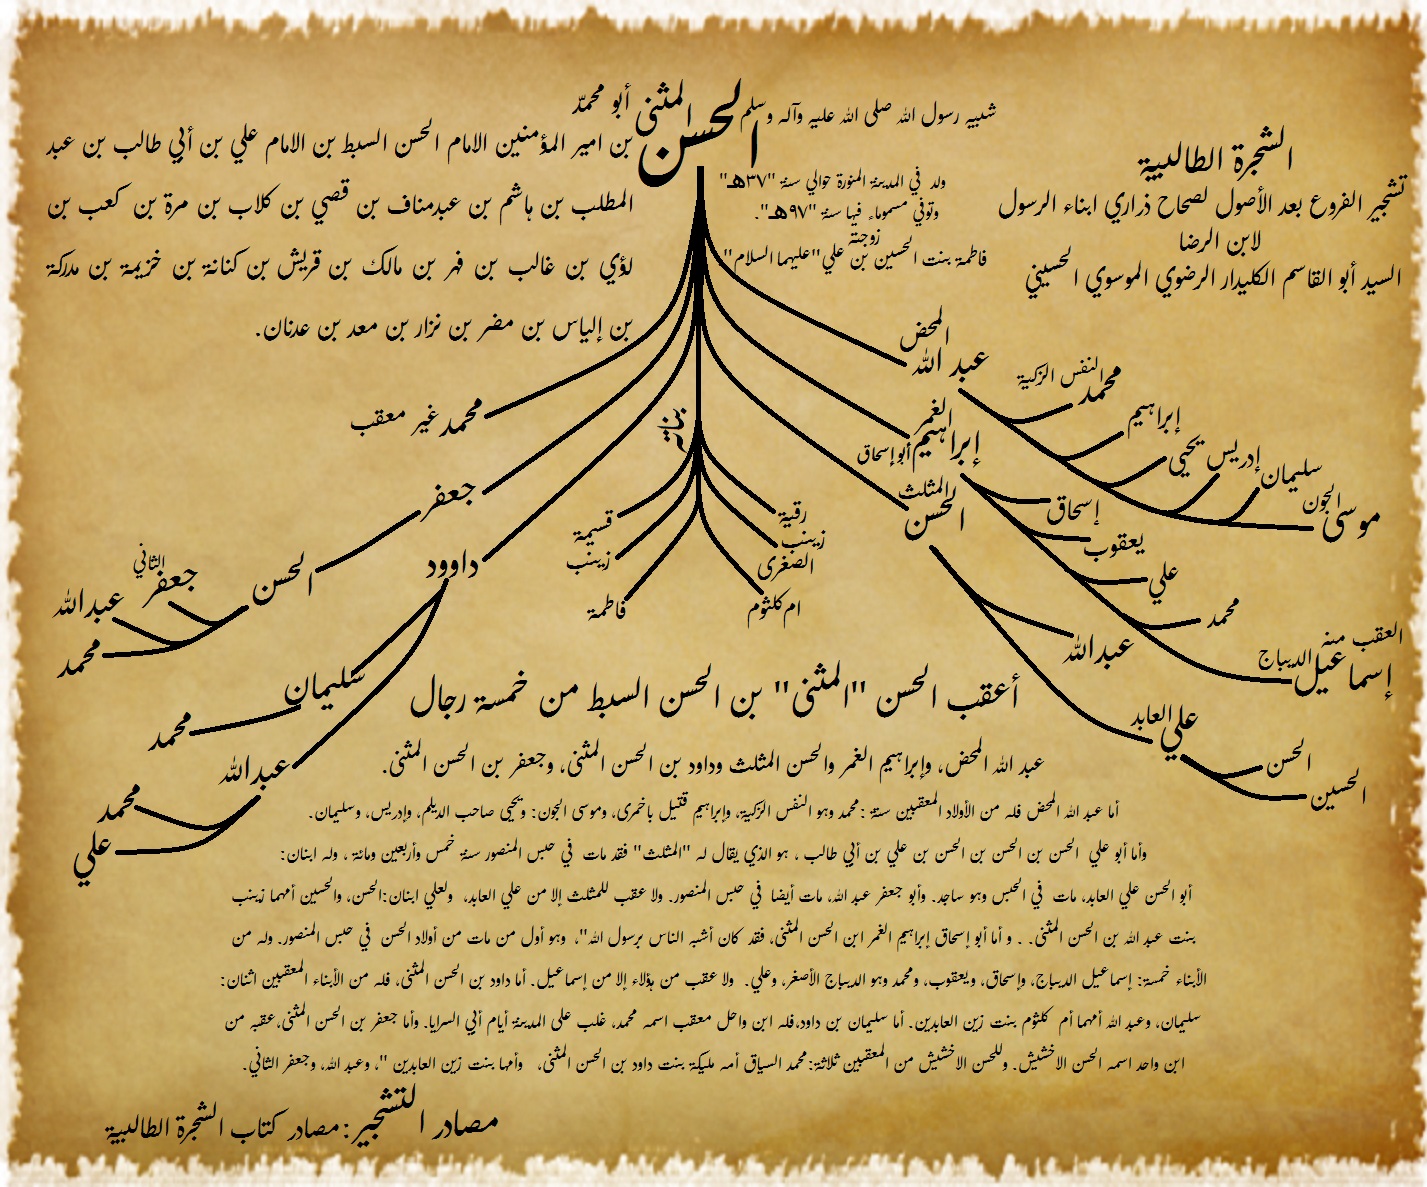 شبيه رسول الله صلى الله عليه وآله وسلم
الحسن المثنى أبو محمّد
بن امير المؤمنين الامام الحسن السبط بن الامام علي بن أبي طالب بن عبد
المطلب بن هاشم بن عبدمناف بن قصي بن كلاب بن مرة بن كعب بن
لؤي بن غالب بن فهر بن مالك بن قريش بن كنانة بن خزيمة بن مدركة
بن إلياس بن مضر بن نزار بن معد بن عدنان.
الشجرة الطالبية
تشجير الفروع بعد الأصول لصحاح ذراري ابناء الرسول
لابن الرضا
السيد أبو القاسم الكليدار الرضوي الموسوي الحسيني
ولد في المدينة المنورة حوالي سنة "٣٧هـ"
وتوفي مسموماء فيها سنة "٩٧هـ".
زوجته
فاطمة بنت الحسين بن علي "عليهما السلام"
المحض
عبد الله
النفس الزكية
محمد
إبراهيم
يحيى
إدريس
سليمان
الجون
موسى
الغمر
إبراهيم أبو إسحاق
إسحاق
يعقوب
علي
محمد
العقب منه
إسماعيل الديباج
المثلث
الحسن
عبدالله
علي العابد
الحسن
الحسين
بناته
رقية
زينب
الصغرى
ام كلثوم
قسيمة
زينب
فاطمة
محمد غير معقب
جعفر
الحسن
الثاني
جعفر
عبدالله
محمد
داوود
سليمان
محمد
عبدالله
محمد
علي
أعقب الحسن "المثنى" بن الحسن السبط من خمسة رجال
عبد الله المحض، وإبراهيم الغمر والحسن المثلث وداود بن الحسن المثنى، وجعفر بن الحسن المثنى.
أما عبد الله المحض فله من الأولاد المعقبين ستة :محمد وهو النفس الزكية، وإبراهيم قتيل باخمرى، وموسى الجون: ويحيى صاحب الديلم، وإدريس، وسليمان.
وأما أبو علي الحسن بن الحسن بن الحسن بن علي بن أبي طالب ، هو الذي يقال له "المثلث" فقد مات في حبس المنصور سنة خمس وأربعين ومائة ، وله ابنان:
أبو الحسن علي العابد، مات في الحبس وهو ساجد. وأبو جعفر عبد الله، مات أيضا في حبس المنصور. ولا عقب للمثلث إلا من علي العابد، ولعلي ابنان:الحسن، والحسين أمهما زينب
بنت عبد الله بن الحسن المثنى. . و أما أبو إسحاق إبراهيم الغمر ابن الحسن المثنى، فقد كان أشبه الناس برسول الله"، وهو أول من مات من أولاد الحسن في حبس المنصور. وله من
الأبناء خمسة: إسماعيل الديباج، وإسحاق، ويعقوب، ومحمد وهو الديباج الأصغر، وعلي. ولا عقب من هؤلاء إلا من إسماعيل. أما داود بن الحسن المثنى، فله من الأبناء المعقبين اثنان:
سليمان، وعبد الله أمهما أم كلثوم بنت زين العابدين. أما سليمان بن داود،فله ابن واحل معقب اسمه محمد، غلب على المدينة أيام أبي السرايا. وأما جعفر بن الحسن المثنى،عقبه من
ابن واحد اسمه الحسن الاخشيش. وللحسن الاخشيش من المعقبين ثلاثة:محمد السياق أمه مليكة بنت داود بن الحسن المثنى، وأمها بنت زين العابدين "، وعبد الله، وجعفر الثاني.
مصادر التشجير: مصادر كتاب الشجرة الطالبية